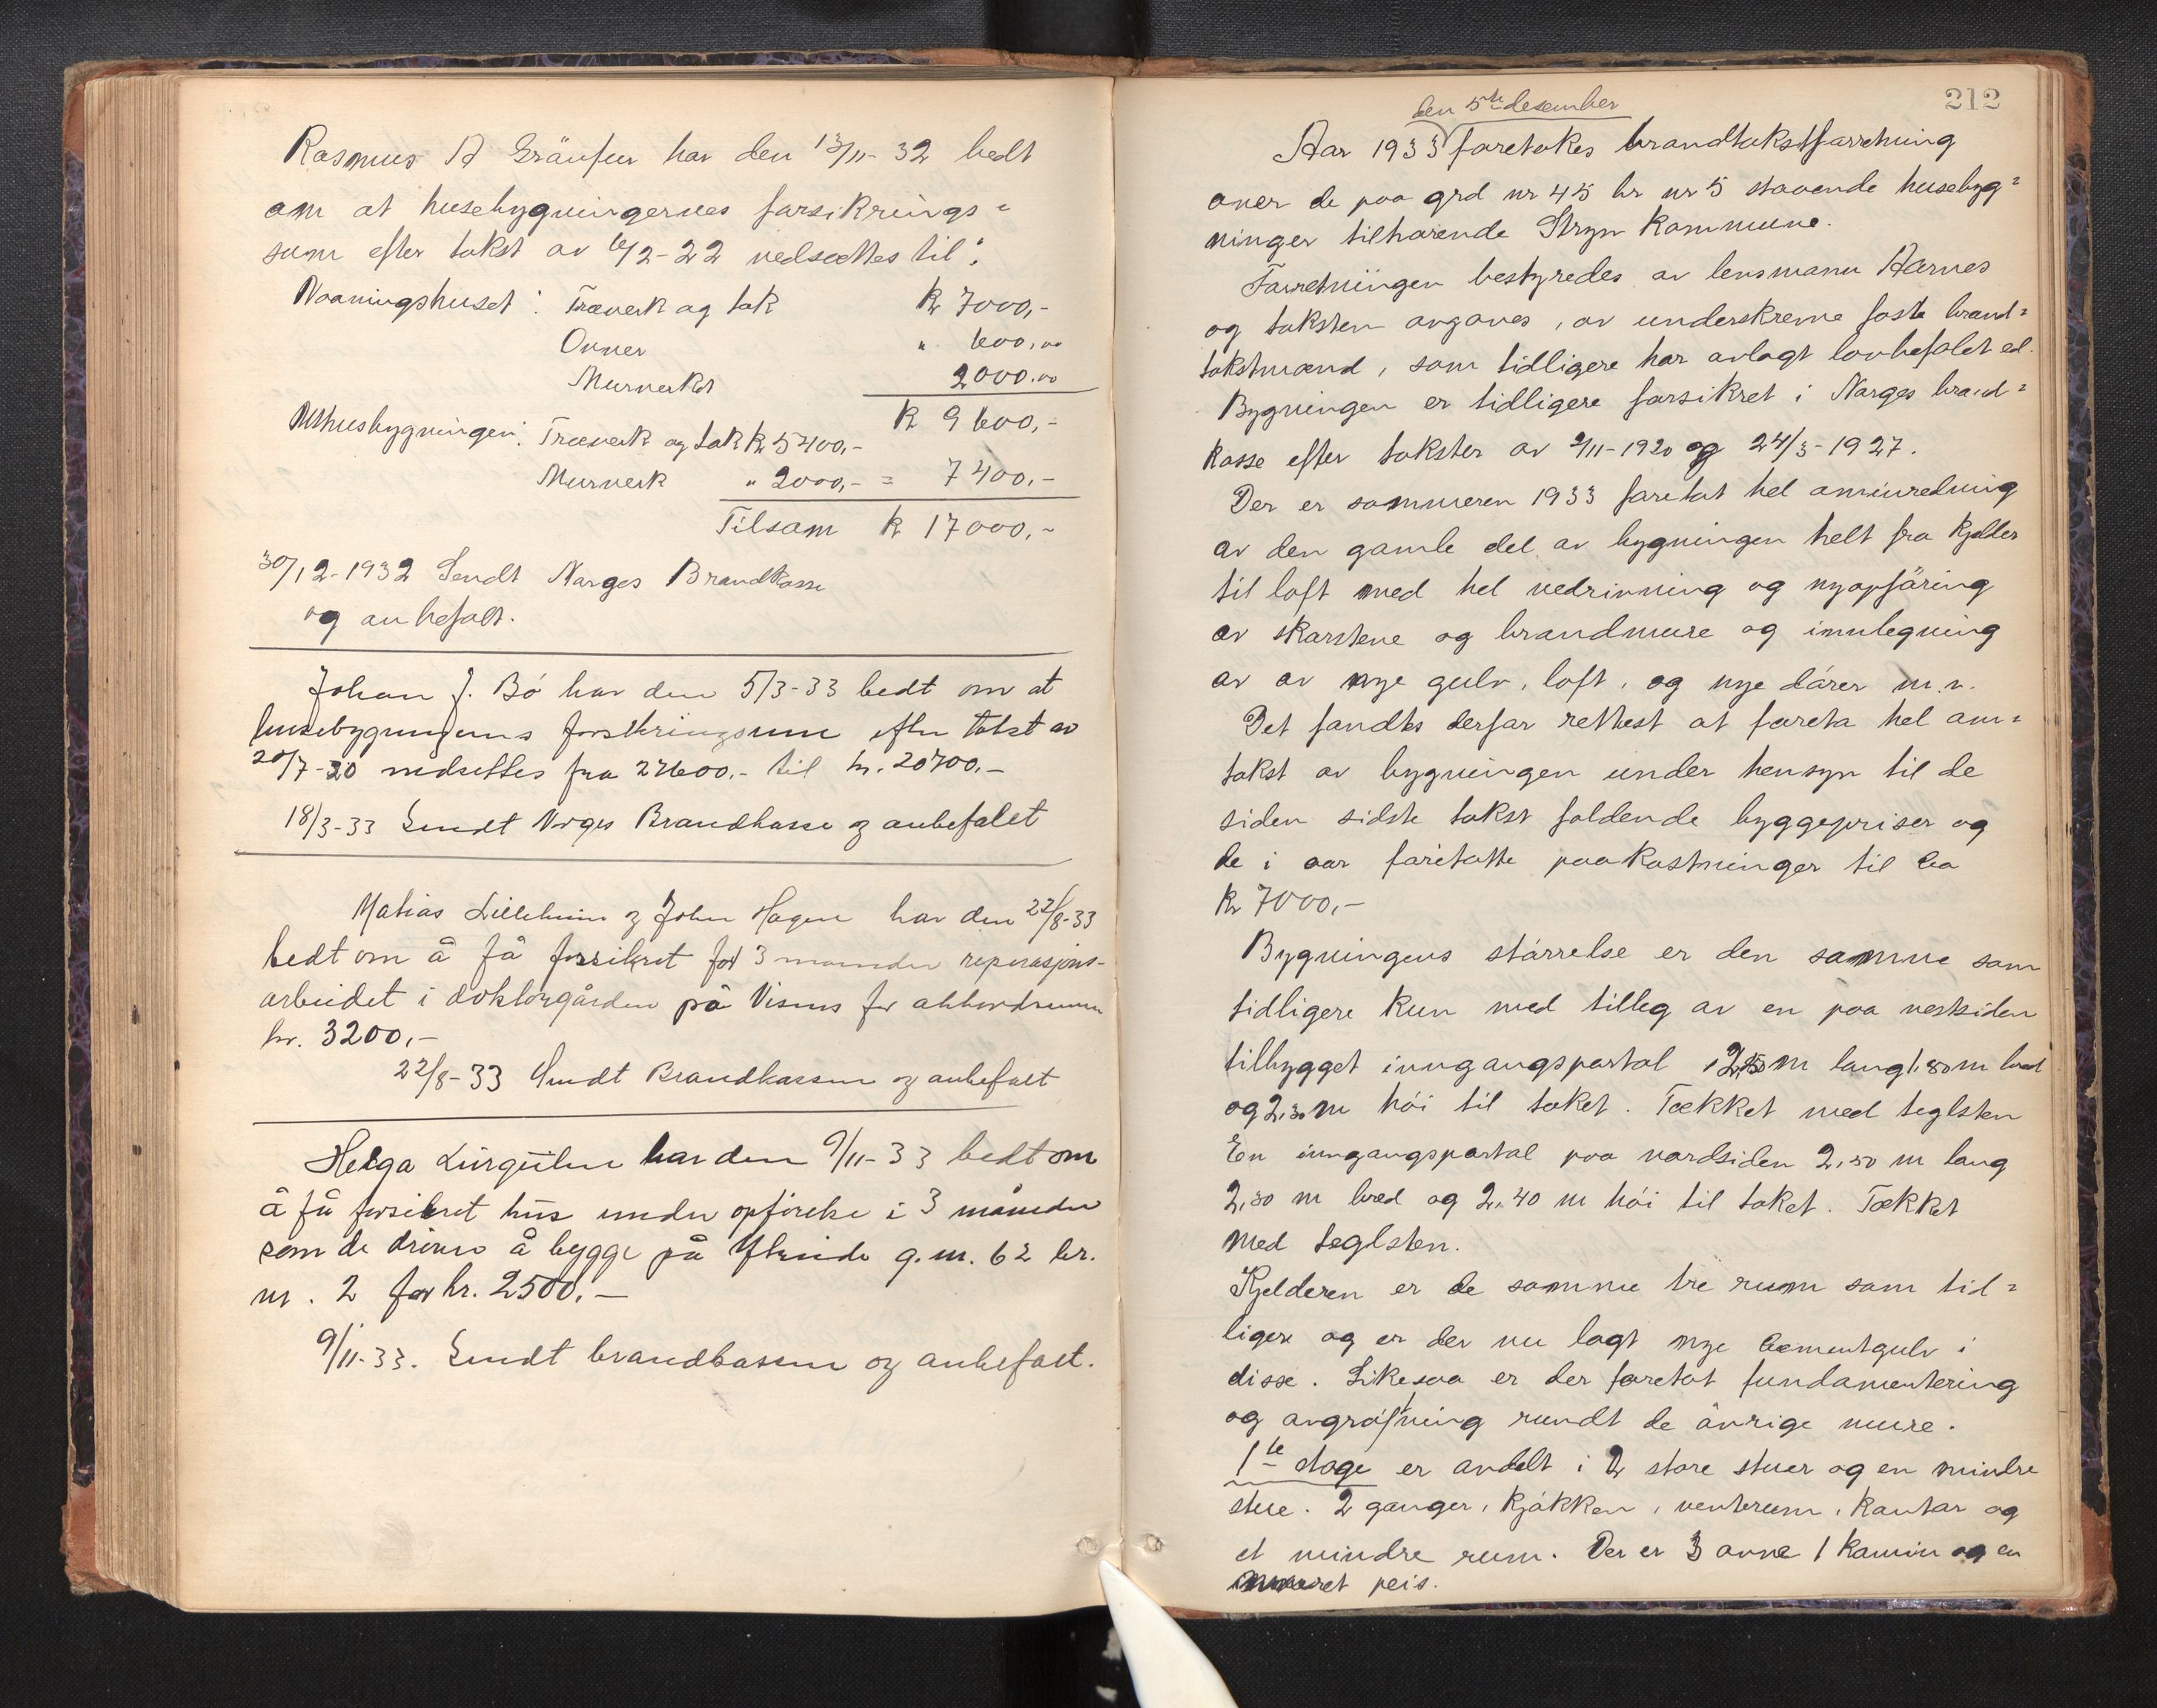 Rasmus A Gränfur har den 13/11-32 bedt
om at husebygningernes forsikrings=
sum efter takst av 6/2-22 nedsættes til:
Vaaningshuset: Træverk og tak kr 7000,-
Ovner " 600,00
Murverket 2000.00
kr 9600,-
Uthusbygningen: Træverk og tak kr 5400,-
Murverk " 2000,- = 7400,-
Tilsam kr 17000,-
30/12-1932 Sendt Norges Brandkasse
og anbefalt.
Johan J. Bö har den 5/3-33 bedt om at
husebygningens forsikringsum efter takst av
20/7-20 nedsettes fra 27600.- til kr. 20700,-
18/3-33 Sendt Norges Brandkasse og anbefalet
Matias Lilleheim og John Hagen har den 22/8-33
bedt om å få forsikret for 3 måneder reperasjons-
arbeidet i doktorgården på Visnes for akkordsummen
kr. 3200,-
22/8-33 Sendt Brandkassen og anbefalt
Helga har den 9/11-33 bedt om
å få forsikret hus under opförelse i 3 måneder
som de driver å bygge på g.nr. 62 br.
nr. 2 for kr. 2500,-
9/11-33. Sendt brandkassen og anbefalt.
212
den 5te desember
Aar 1933 foretokes brandtakstforretning
over de paa grd nr 45 br nr 5 staaende husebyg=
ninger tilhørende Stryn kommune.
Forretningen bestyredes av lensmann Aarnes
og taksten avgaves, av underskrevne faste brand=
takstmænd, som tidligere har avlagt lovbefalet ed.
Bygningen er tidligere forsikret i Norges brand=
kasse efter takster av 2/11-1920 og 24/3-1927.
Der er sommeren 1933 foretat hel ominredning
av den gamle del av bygningen helt fra kjelder
til loft med hel nedrivning og nyopføring
av skorstene og brandmure og innlegning
av av nye gulv, loft, og nye dører m.v.
Det fandtes derfor rettest at foreta hel om=
takst av bygningen under hensyn til de
siden sidste takst faldende byggepriser og
de i aar foretatte paakostninger til ca
kr 7000,-
Bygningens størrelse er den samme som
tidligere kun med tilleg av en paa vestsiden
tilbygget inngangsportal 2,25 m lang 1.80 m bred
og 2,30 m høi til taket. Tækket med teglsten
En inngangsportal paa nordsiden 2,50 m lang
2,30 m bred og 2,40 m høi til taket. Tækket
med teglsten.
Kjelderen er de samme tre rum som tid=
ligere og er der nu lagt nye cementgulv i
disse. Likesaa er der foretat fundamentering
og avgrøftning rundt de øvrige mure.
1te etage er avdelt i 2 store stuer og en mindre
stue. 2 ganger, kjøkken, venterum, kontor og
et mindre rum. Der er 3 ovne 1 kamin og en
muret peis.